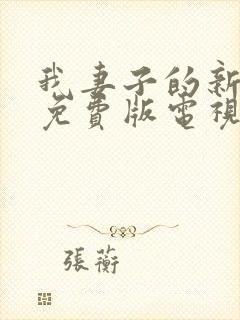 我妻子的新
免費版電視
張蘅